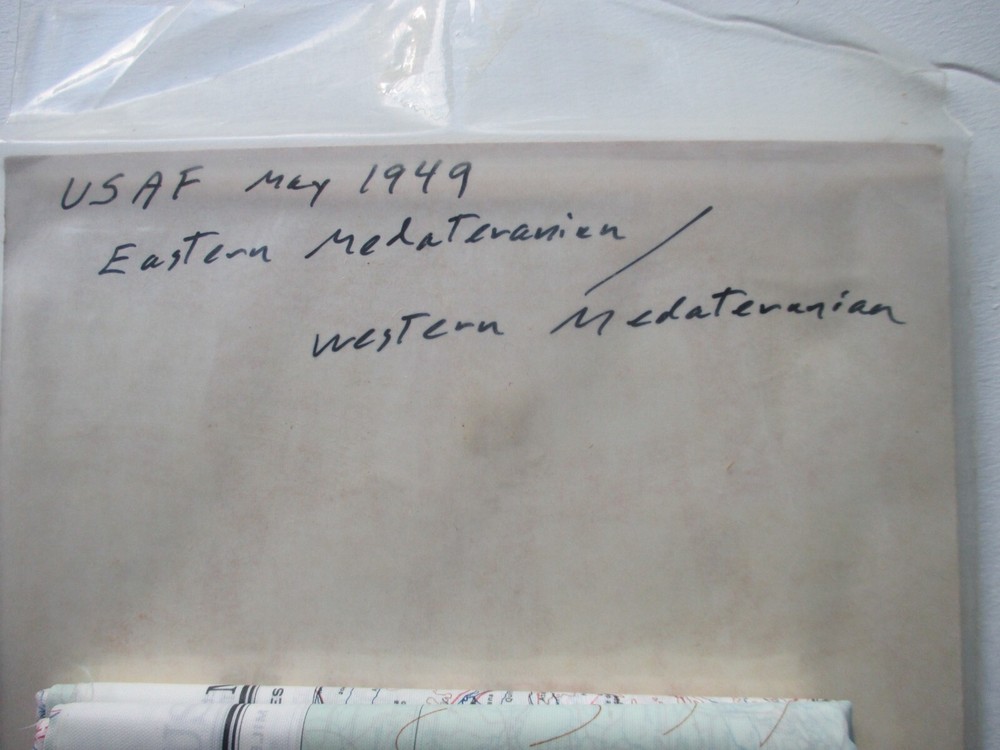 USAF May 1949
Eastern Medateranian /
Western Medateranian
ES